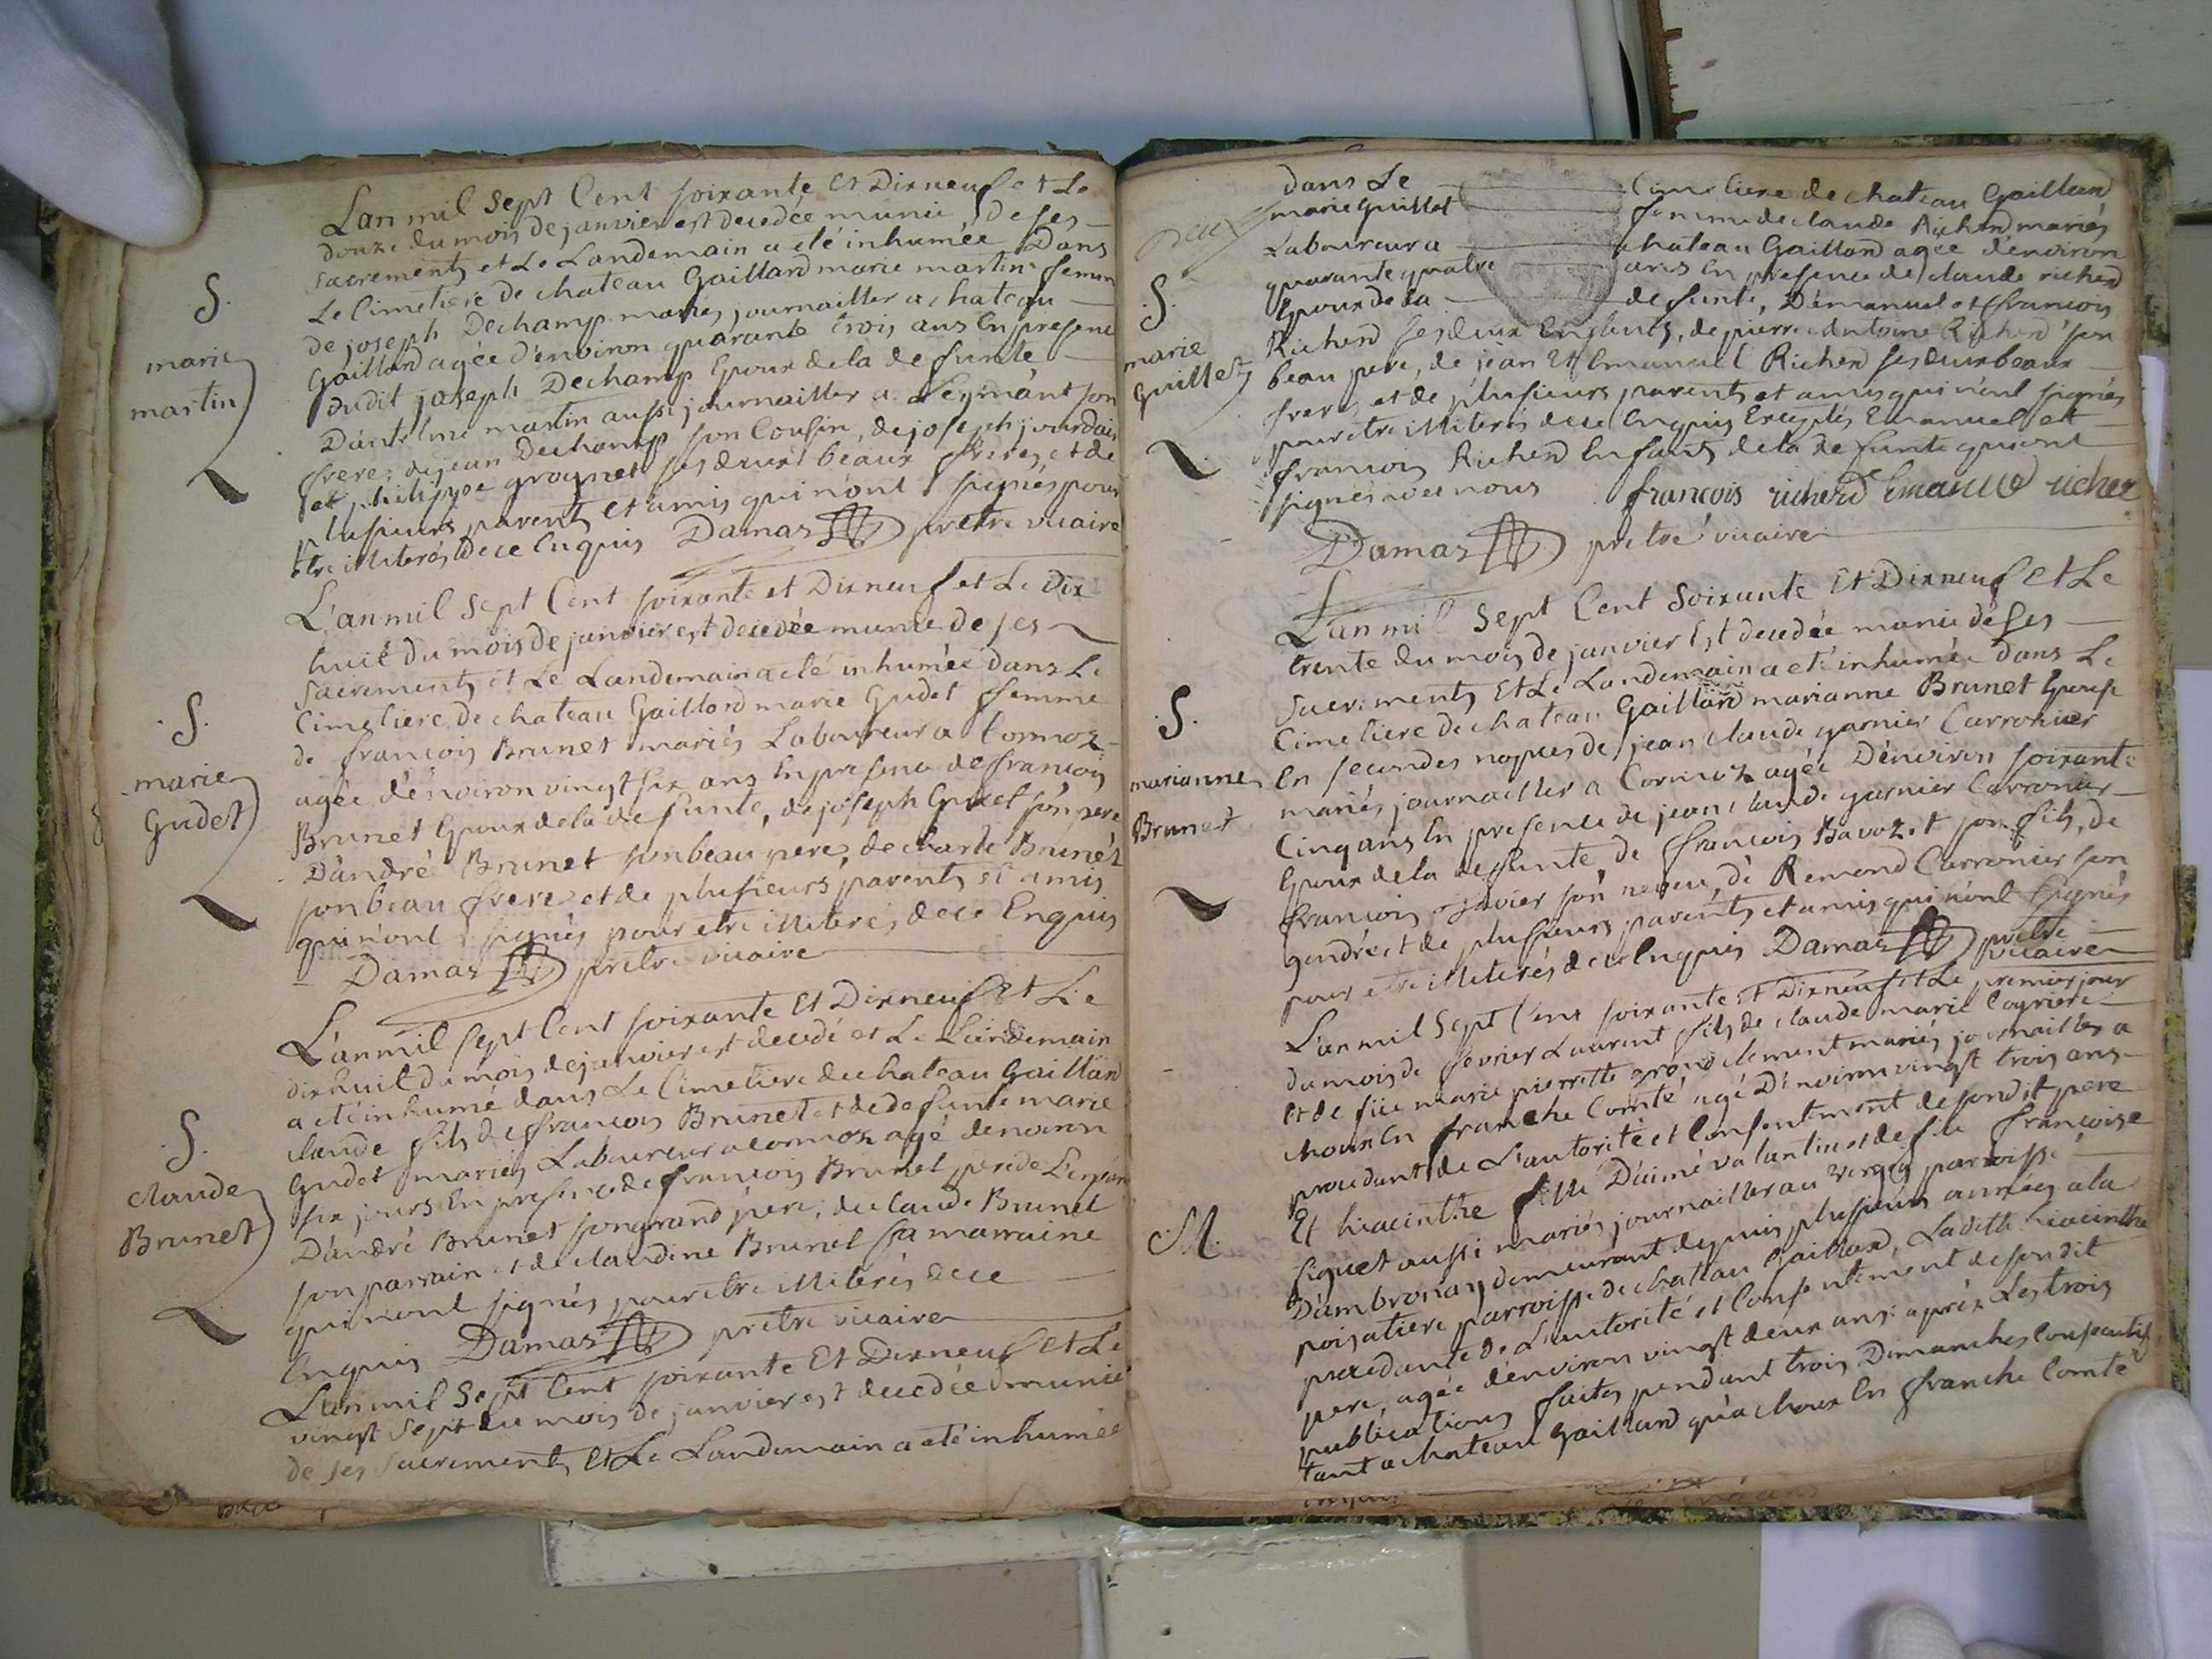 Lan mil Sept Cent soixante et Dixneuf et Le
douze du mois de janvier est decedée munie de ses
sacrements et Le Landemain a eté inhumée Dans
Le Cimetiere de chateau Gaillard marie martin femme
de joseph Dechamp mariés journaillier a chateau
Gaillard agée d'environ quarante trois ans En presence
dudit joseph Dechamp Epoux de la defunte
D'antelme martin aussi journaillier a Leymant son
frere, de jean Dechamp son Cousin, de joseph jourdain
et philippe groynet ses deux beaux freres et de
plusieurs parents et amis qui n'ont signés pour
etre illiterés de ce Enquis Damas pretre vicaire
S.
marie
martin
L'an mil Sept Cent soixante et Dixneuf et Le Dix
huit du mois de janvier est decedée munie de ses
sacrements et Le Landemain a eté inhumée dans Le
Cimetiere de chateau Gaillard marie Gudet femme
de francois Brunet mariés Laboureur a Cormoz
agée d'environ vingt six ans En presence de francois
Brunet Epoux de la defunte, de joseph Gudet son pere
D'andré Brunet son beau pere, de charle Brunet
son beau frere et de plusieurs parents et amis
qui n'ont signés pour etre illiterés de ce Enquis
Damas pretre vicaire
S.
marie
Gudet
L'an mil sept Cent soixante Et Dixneuf et Le
dixhuit du mois de janvier est decedé et Le Landemain
a eté inhumé dans Le Cimetiere de chateau Gaillard
claude fils de francois Brunet et de defunte marie
Gudet mariés Laboureur a Cormoz agé denviron
six jours En presence de francois Brunet pere de L'enfant
D'andré Brunet son grand pere, de claude Brunet
son parrain et de claudine Brunet sa marraine
qui n'ont signés pour etre illiterés de ce
Enquis Damas pretre vicaire
S.
claude
Brunet
L'an mil Sept Cent soixante Et Dixneuf et Le
vingt sept du mois de janvier est decedée munie
de ses sacrements Et Le Landemain a eté inhumée
deux
dans Le Cimetiere de chateau Gaillard
marie Guillet femme de claude Richerd mariés
Laboureur a chateau Gaillard agée d'environ
quarante quatre ans En presence de claude richerd
Epoux de la defunte, D'emanuel et francois
Richerd ses deux Enfants, de pierre Antoine Richerd son
beau pere, de jean Et Emanuel Richerd ses deux beaux
freres et de plusieurs parents et amis qui n'ont signés
pour etre illiterés de ce Enquis Exceptés Emanuel et
francois Richerd Enfants de la defunte qui ont
signés avec nous francois richerd Emanuel richer
Damas pretre vicaire
S.
marie
Guillet
L'an mil Sept Cent Soixante Et Dixneuf Et Le
trente du mois de janvier Est decedée munie de ses
sacrements Et Le Landemain a eté inhumée dans Le
Cimetiere de chateau Gaillard marianne Brunet Epouse
En secondes nopces de jean claude garnier Carronier
mariés journaillier a Cormoz agée D'environ soixante
Cinq ans En presence de jean claude garnier Carronier
Epoux de la deffunte, de francois Bavozet son fils, de
francois son neveu, de Remond Carronier son
gendre et de plusieurs parents et amis qui n'ont signés
pour etre illiterés de ce Enquis Damas pretre
vicaire
S.
marianne
Brunet
L'an mil Sept Cent soixante Et Dixneuf et Le premier jour
du mois de fevrier Laurent fils de claude marie
et de füe marie pierrette grandclement mariés journaillier a
choux En franche Comté agé D'environ vingt trois ans
procedant de L'autorité et Consentement de sondit pere
Et hiacinthe fille D'aimé valantin et de füe francoise
piquet aussi mariés journaillier au verger parroisse
D'ambronay demeurant depuis plusieurs années a la
poisatiere parroisse de chateau Gaillard, Ladite hiacinthe
procedante de L'autorité et Consentement de son dit
pere, agée d'environ vingt deux ans: après Les trois
publications faites pendant trois Dimanches Consecutifs
tant a chateau Gaillard qu'a choux En franche Comté
M.